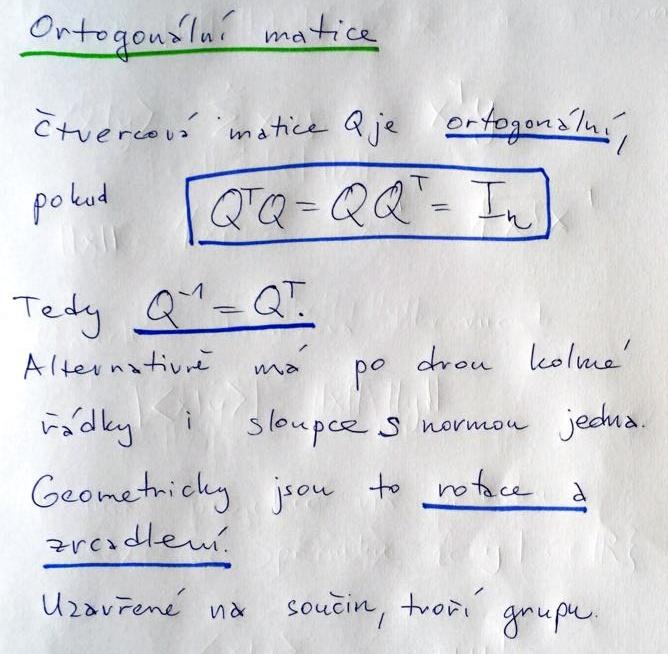 Ortogonální matice
Čtvercová matice Q je ortogonální,
pokud QᵀQ = QQᵀ = Iₙ
Tedy Q⁻¹ = Qᵀ.
Alternativně má po dvou kolmé
řádky i sloupce s normou jedna.
Geometricky jsou to rotace a
zrcadlení.
Uzavřené na součin, tvoří grupu.